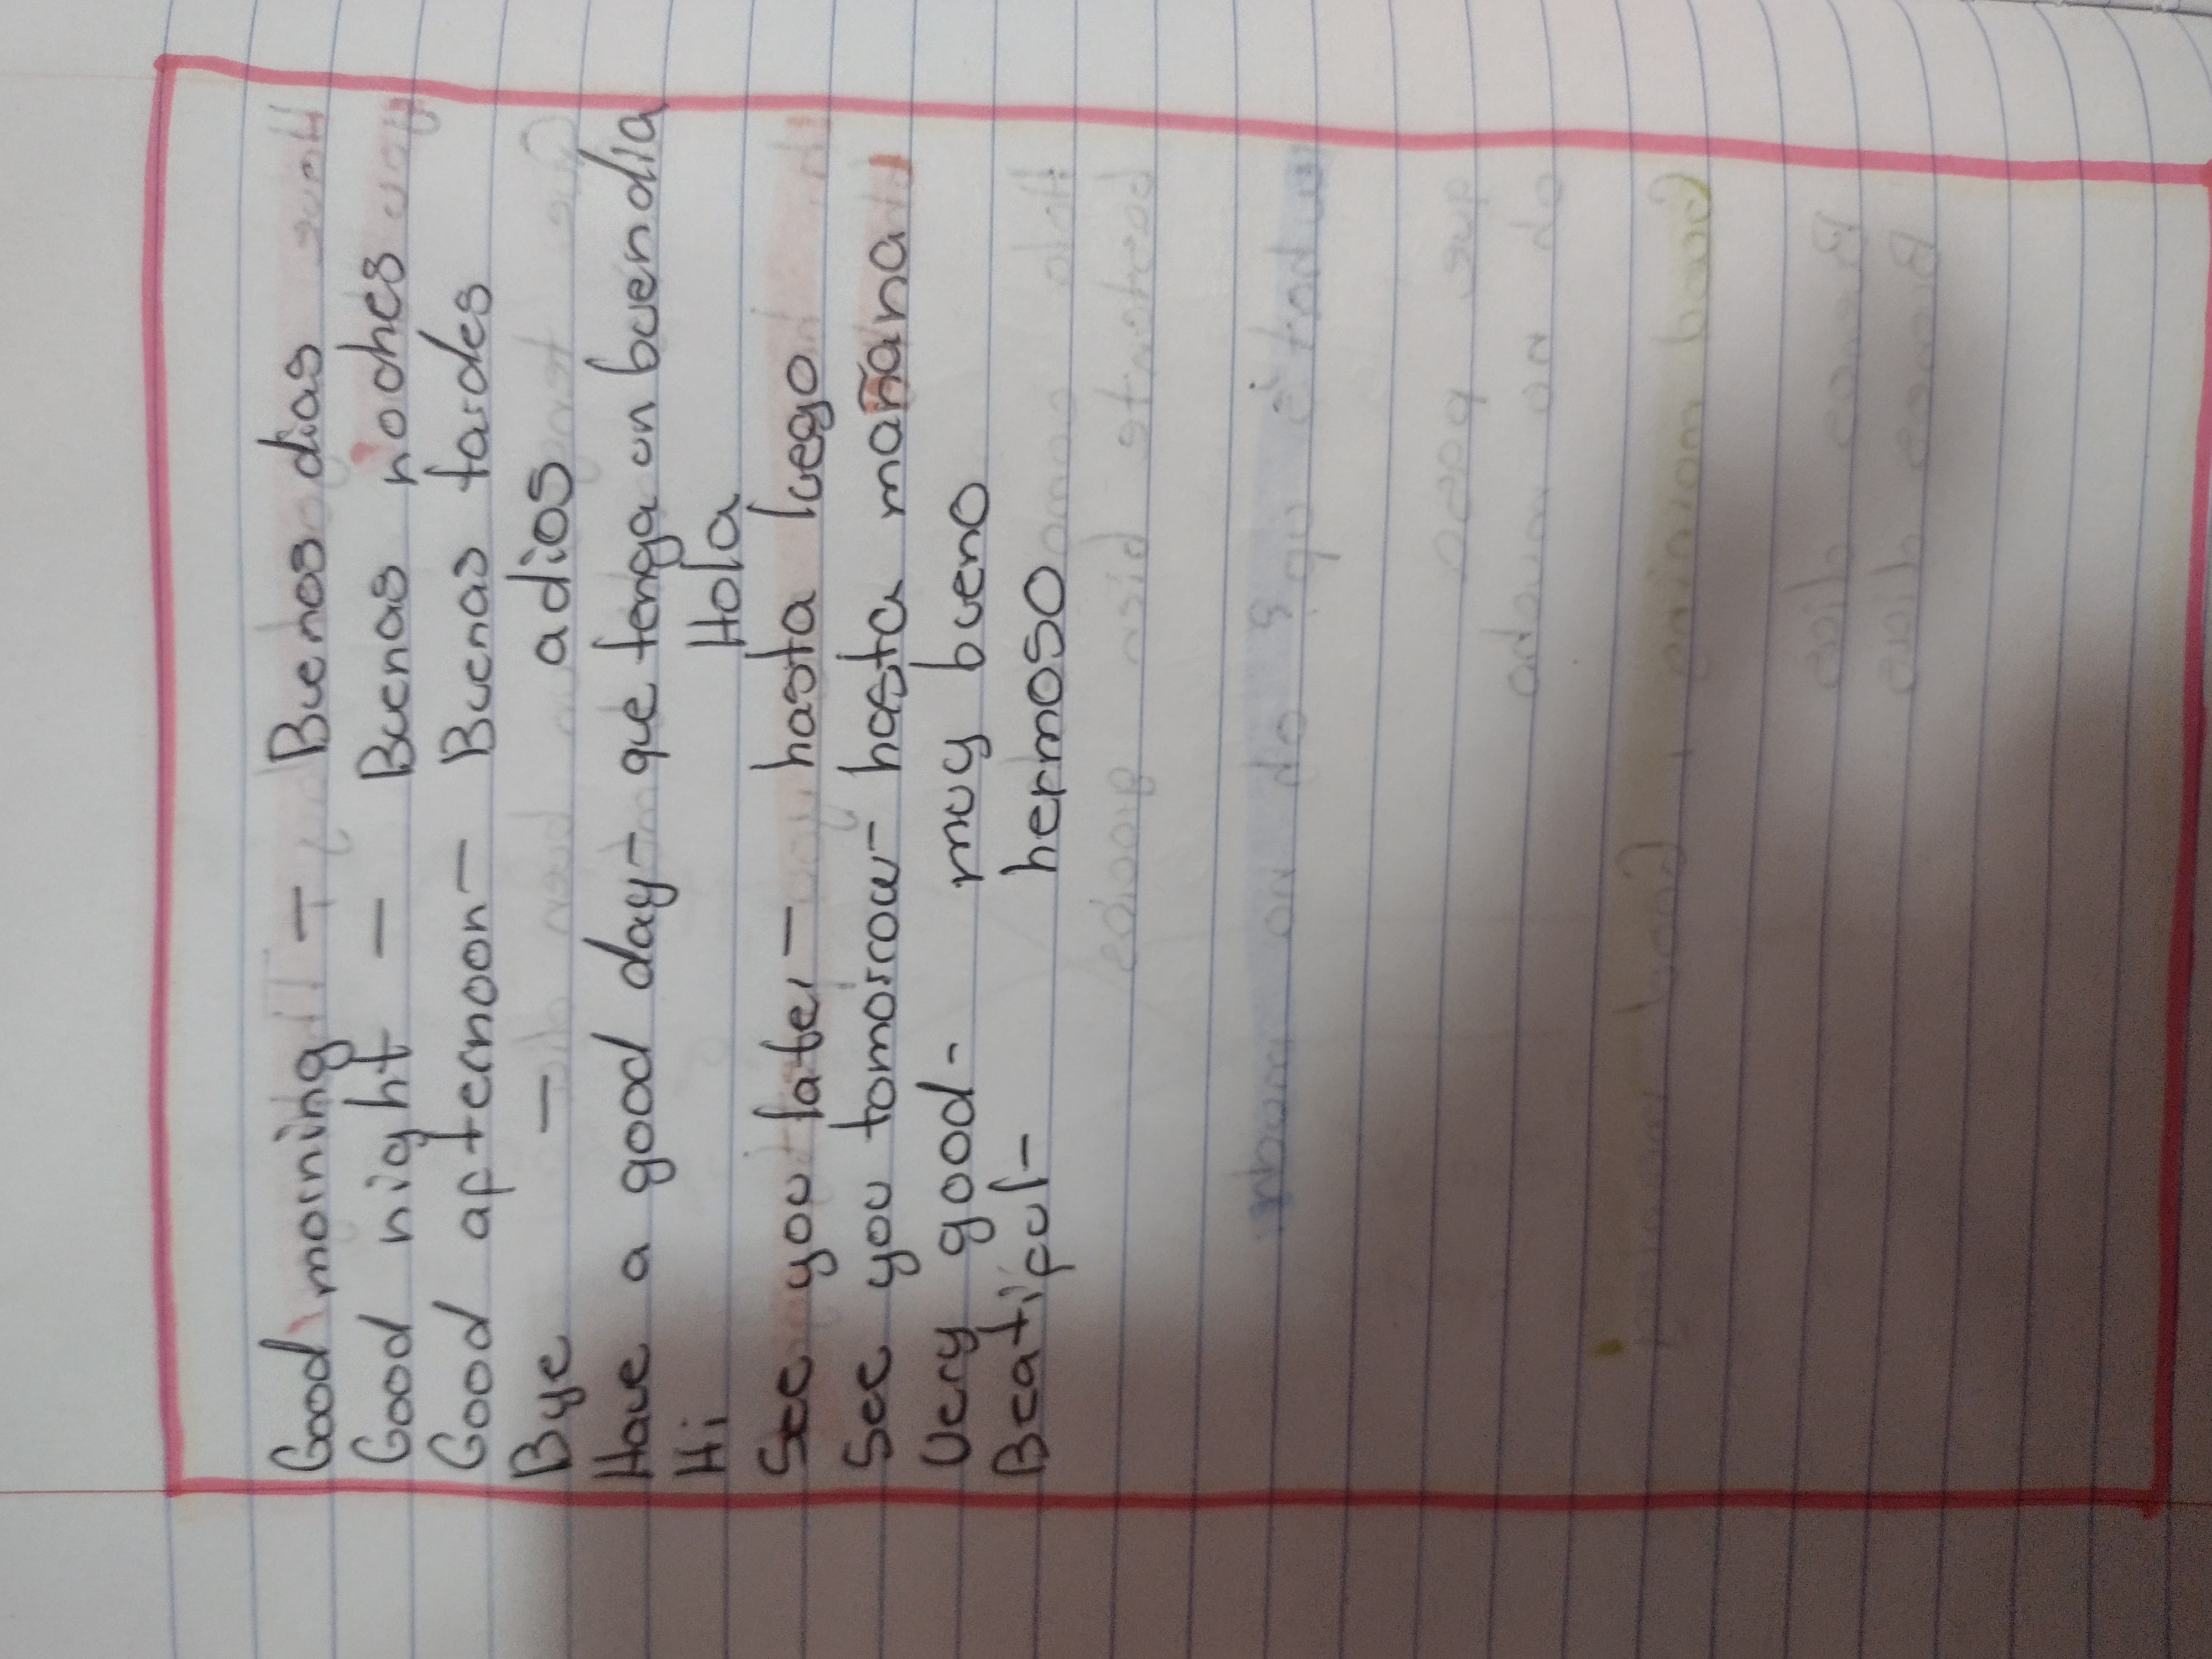 Good morning - Buenos dias
Good night - Buenas noches
Good afternoon - Buenas tardes
Bye - adios
Have a good day - que tenga un buen dia
Hi Hola
See you later - hasta luego
See you tomorrow - hasta mañana
Very good - muy bueno
Beatiful - hermoso